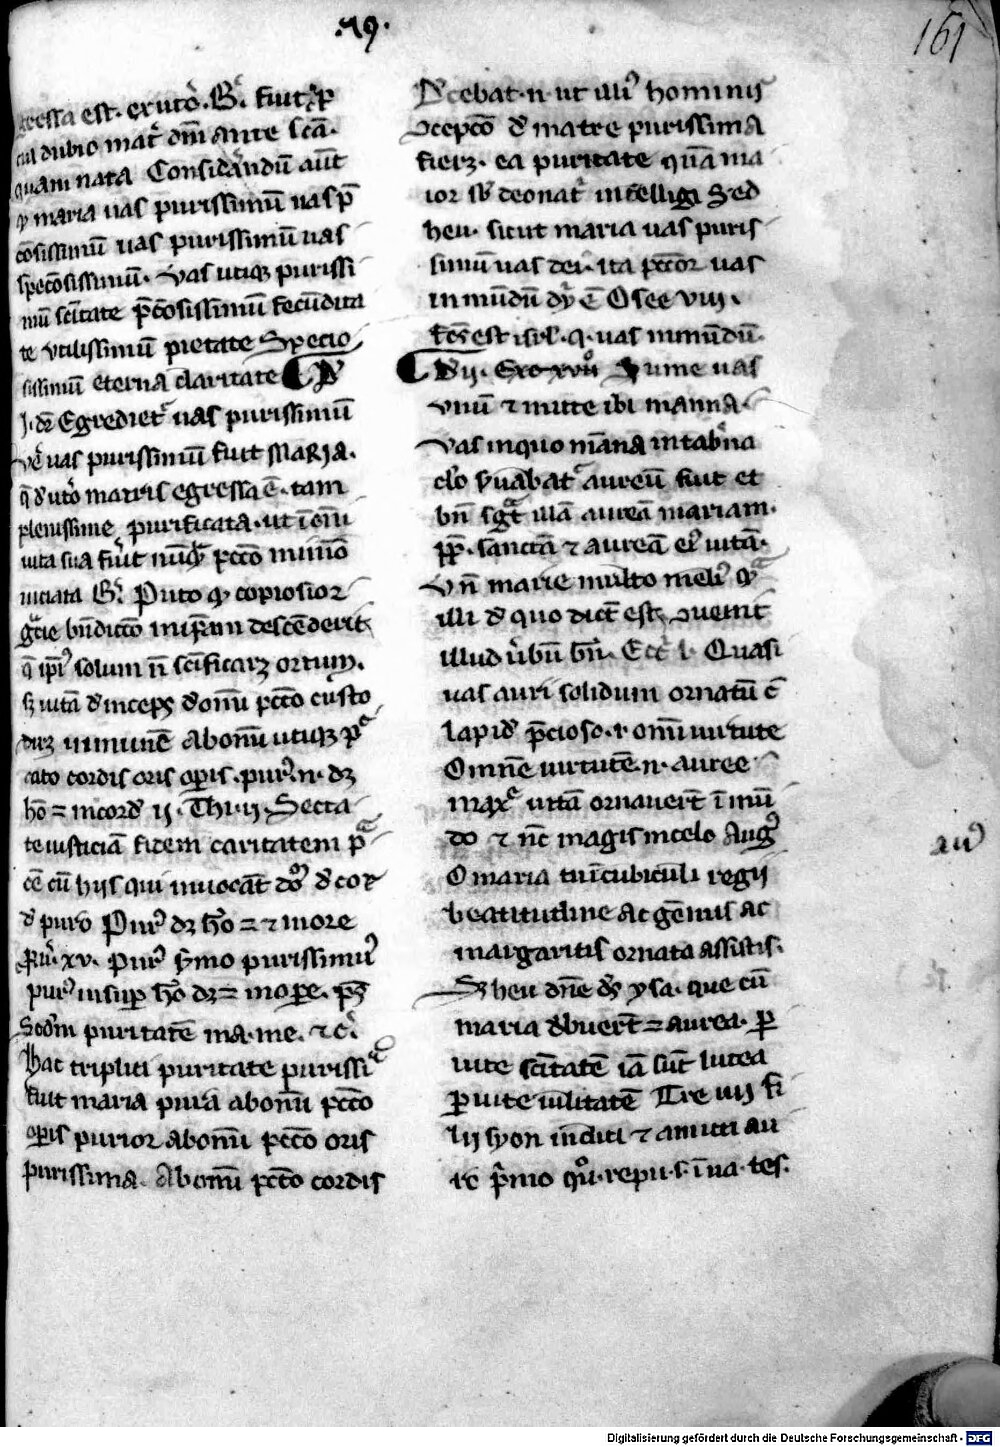 ·79·
161
gressa est. ex uto᷑. B᷑. fuit p᷑
cul dubio mat᷑ dn̄i ante scā·
quam nata Considerandū aūt
qꝫ maria uas purissimū uas p̄
cōsissimū uas purissimū uas
specōsissimū. Vas utiqꝫ purissi
mū scītate p̄cōsissimū fecūdita
te vtilissimū pietate Specio
sissimū eterna claritate
Egrediet᷑ uas purissimū
uas purissimū fuit MARIA.
egressa ē. tam
plenissime purificata. ut ī om̄i
uita sua pctō minīo
uiciata B᷑. Puto qꝫ copiosior
gr̄e bn̄dictō descēderit
solum n̄ scīficarꝫ ortum.
sꝫ uitā d᷑inceps ab om̄i pctō custo
dirꝫ immunē ab om̄i utiqꝫ p
cato cordis oris opis.
hō = in cord᷑ ij. Thi. ij. Secta
te iusticiā fidem caritatem pa
cē cū hiis qui inuocāt d᷑ cor
d᷑ puro Pur᷒ dꝫ hō = ⁊ in ore
xv. pur᷒ s᷑mo purissimus
pur᷒ insup hō dꝫ = in ope. ps̄
Scd̄m puritatē ma. me. ⁊ c᷑.
Hac triplici puritate purissiª
fuit maria pura ab om̄i pctō
opis purior ab om̄i pctō oris
purissima. Ab om̄i pctō cordis
Decebat. n. ut illi᷒ hominis
ꝯceptō d᷑ matre purissima
fierꝫ. ea puritate quā ma
ior sb᷑ deo nat᷑ intelligi Sed
heu. sicut maria uas puris
simū uas dei. ita pctōr uas
inmūdū dy ē Osee viij.
est isrl. q. uas inmūdū.
Exo xvi Sume uas
vnū ⁊ mitte ibi manna
Vas in quo māna in tab᷑na
clo s᷑uabat᷑ aureū fuit et
bn̄ sgt illā aureā mariam.
pp. sanctā ⁊ aureā ei᷒ uitā.
Vn̄ marie multo meli᷒ qª
illi d᷑ quo dict̄ est. ꝯuenit
illud u᷑bū Quasi
uas auri solidum ornatū ē
lapid᷑ p̄cioso. i. om̄i uirtute
Omnē uirtutē. n. auree
max uitā ornauer̄t ī mū
do ⁊ nc̄ magis in celo Aug᷒
O maria tu ī cubiculi regij
beatitudine ac gēmis ac
margaritis ornata assistis.
Sꝫ heu dn̄e ds᷑ ysa. que cū
maria = aurea. p
uite scītatē iā sūt lutea
p uite uilitatē Tre iiij fi
lij syon incliti ⁊ amicti au
ro p̄mo quō. repu. s. ī ua. tes.
aug᷒
Digitalisierung gefördert durch die Deutsche Forschungsgemeinschaft - DFG